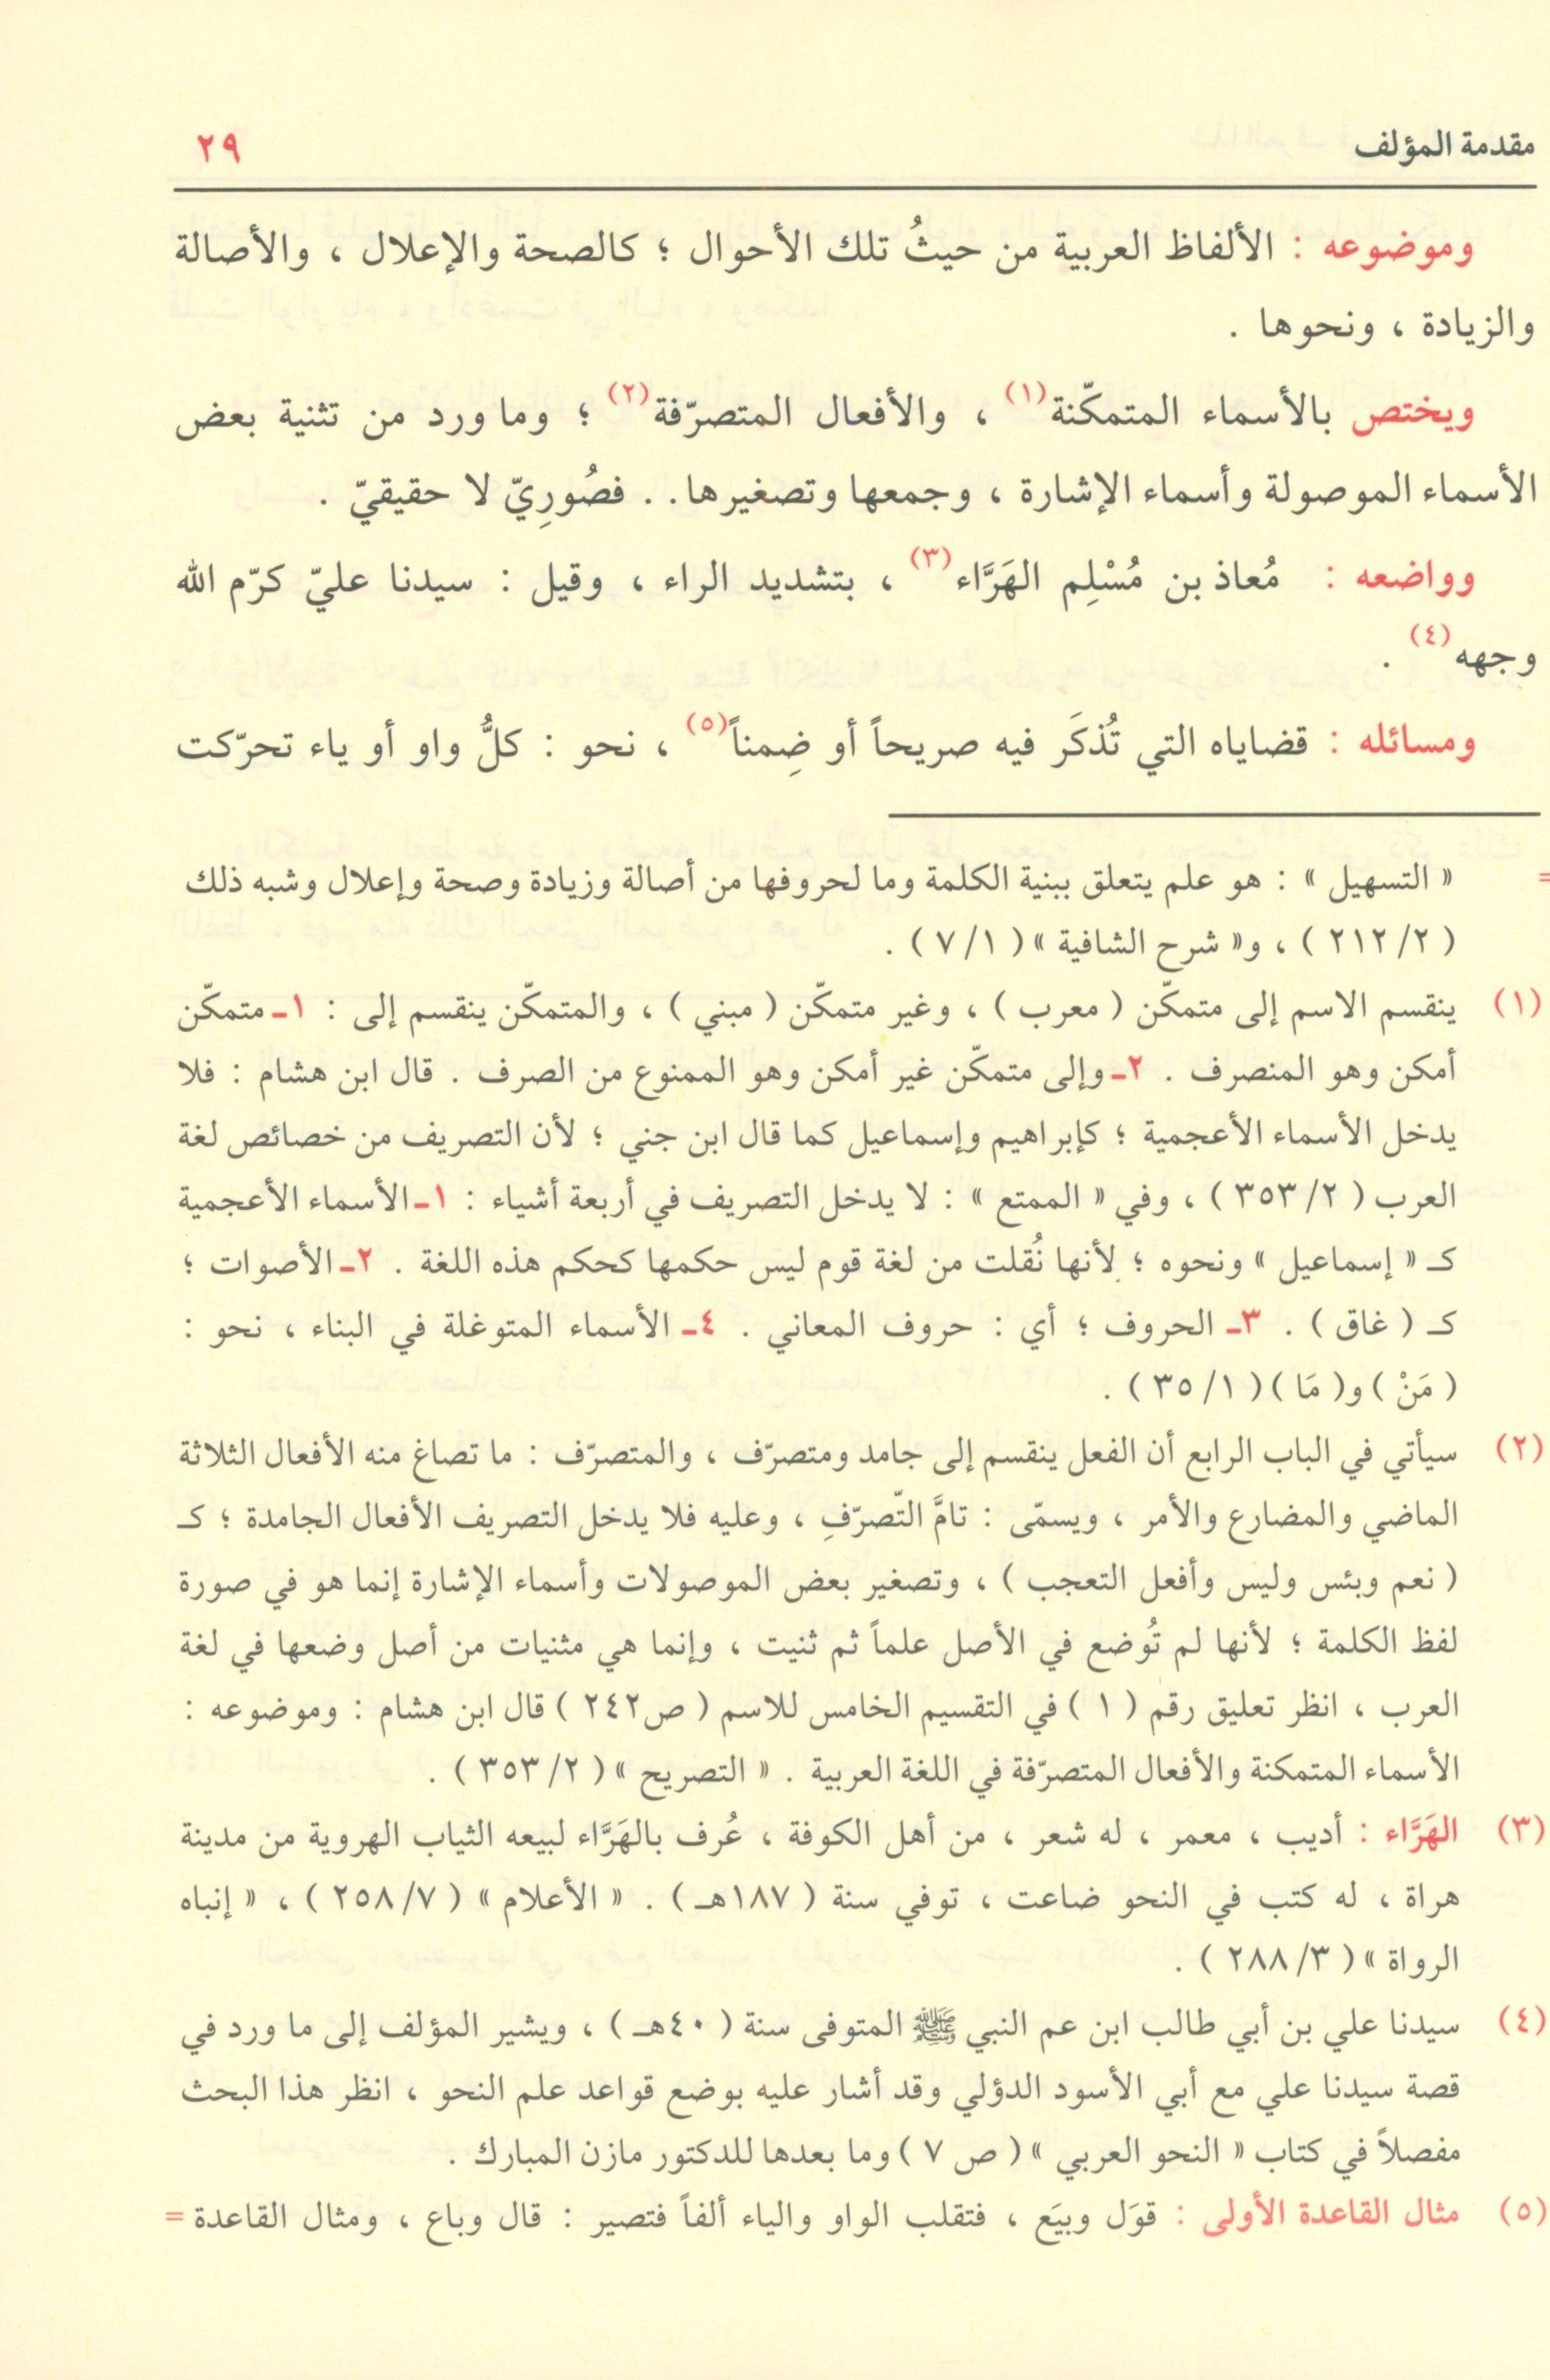 مقدمة المؤلف ٢٩
وموضوعه : الألفاظ العربية من حيثُ تلك الأحوال ؛ كالصحة والإعلال ، والأصالة
والزيادة ، ونحوها .
ويختص بالأسماء المتمكّنة(١) ، والأفعال المتصرّفة(٢) ؛ وما ورد من تثنية بعض
الأسماء الموصولة وأسماء الإشارة ، وجمعها وتصغيرها . . فصُورِيّ لا حقيقيّ .
وواضعه : مُعاذ بن مُسْلِم الهَرَّاء(٣) ، بتشديد الراء ، وقيل : سيدنا عليّ كرّم الله
وجهه(٤) .
ومسائله : قضاياه التي تُذكَر فيه صريحاً أو ضِمناً(٥) ، نحو : كلُّ واو أو ياء تحرّكت
= « التسهيل » : هو علم يتعلق ببنية الكلمة وما لحروفها من أصالة وزيادة وصحة وإعلال وشبه ذلك
( ٢/ ٢١٢ ) ، و« شرح الشافية » ( ١/ ٧ ) .
(١) ينقسم الاسم إلى متمكّن ( معرب ) ، وغير متمكّن ( مبني ) ، والمتمكّن ينقسم إلى : ١ـ متمكّن
أمكن وهو المنصرف . ٢ـ وإلى متمكّن غير أمكن وهو الممنوع من الصرف . قال ابن هشام : فلا
يدخل الأسماء الأعجمية ؛ كإبراهيم وإسماعيل كما قال ابن جني ؛ لأن التصريف من خصائص لغة
العرب ( ٢/ ٣٥٣ ) ، وفي « الممتع » : لا يدخل التصريف في أربعة أشياء : ١ـ الأسماء الأعجمية
كـ « إسماعيل » ونحوه ؛ لأنها نُقلت من لغة قوم ليس حكمها كحكم هذه اللغة . ٢ـ الأصوات ؛
كـ ( غاق ) . ٣ـ الحروف ؛ أي : حروف المعاني . ٤ـ الأسماء المتوغلة في البناء ، نحو :
( مَنْ ) و( مَا ) ( ١/ ٣٥ ) .
(٢) سيأتي في الباب الرابع أن الفعل ينقسم إلى جامد ومتصرّف ، والمتصرّف : ما تصاغ منه الأفعال الثلاثة
الماضي والمضارع والأمر ، ويسمّى : تامَّ التّصرّفِ ، وعليه فلا يدخل التصريف الأفعال الجامدة ؛ كـ
( نعم وبئس وليس وأفعل التعجب ) ، وتصغير بعض الموصولات وأسماء الإشارة إنما هو في صورة
لفظ الكلمة ؛ لأنها لم تُوضع في الأصل علماً ثم ثنيت ، وإنما هي مثنيات من أصل وضعها في لغة
العرب ، انظر تعليق رقم ( ١ ) في التقسيم الخامس للاسم ( ص٢٤٢ ) قال ابن هشام : وموضوعه :
الأسماء المتمكنة والأفعال المتصرّفة في اللغة العربية . « التصريح » ( ٢/ ٣٥٣ ) .
(٣) الهَرَّاء : أديب ، معمر ، له شعر ، من أهل الكوفة ، عُرف بالهَرَّاء لبيعه الثياب الهروية من مدينة
هراة ، له كتب في النحو ضاعت ، توفي سنة ( ١٨٧هـ ) . « الأعلام » ( ٧/ ٢٥٨ ) ، « إنباه
الرواة » ( ٣/ ٢٨٨ ) .
(٤) سيدنا علي بن أبي طالب ابن عم النبي ﷺ المتوفى سنة ( ٤٠هـ ) ، ويشير المؤلف إلى ما ورد في
قصة سيدنا علي مع أبي الأسود الدؤلي وقد أشار عليه بوضع قواعد علم النحو ، انظر هذا البحث
مفصلاً في كتاب « النحو العربي » ( ص ٧ ) وما بعدها للدكتور مازن المبارك .
(٥) مثال القاعدة الأولى : قوَل وبيَع ، فتقلب الواو والياء ألفاً فتصير : قال وباع ، ومثال القاعدة =